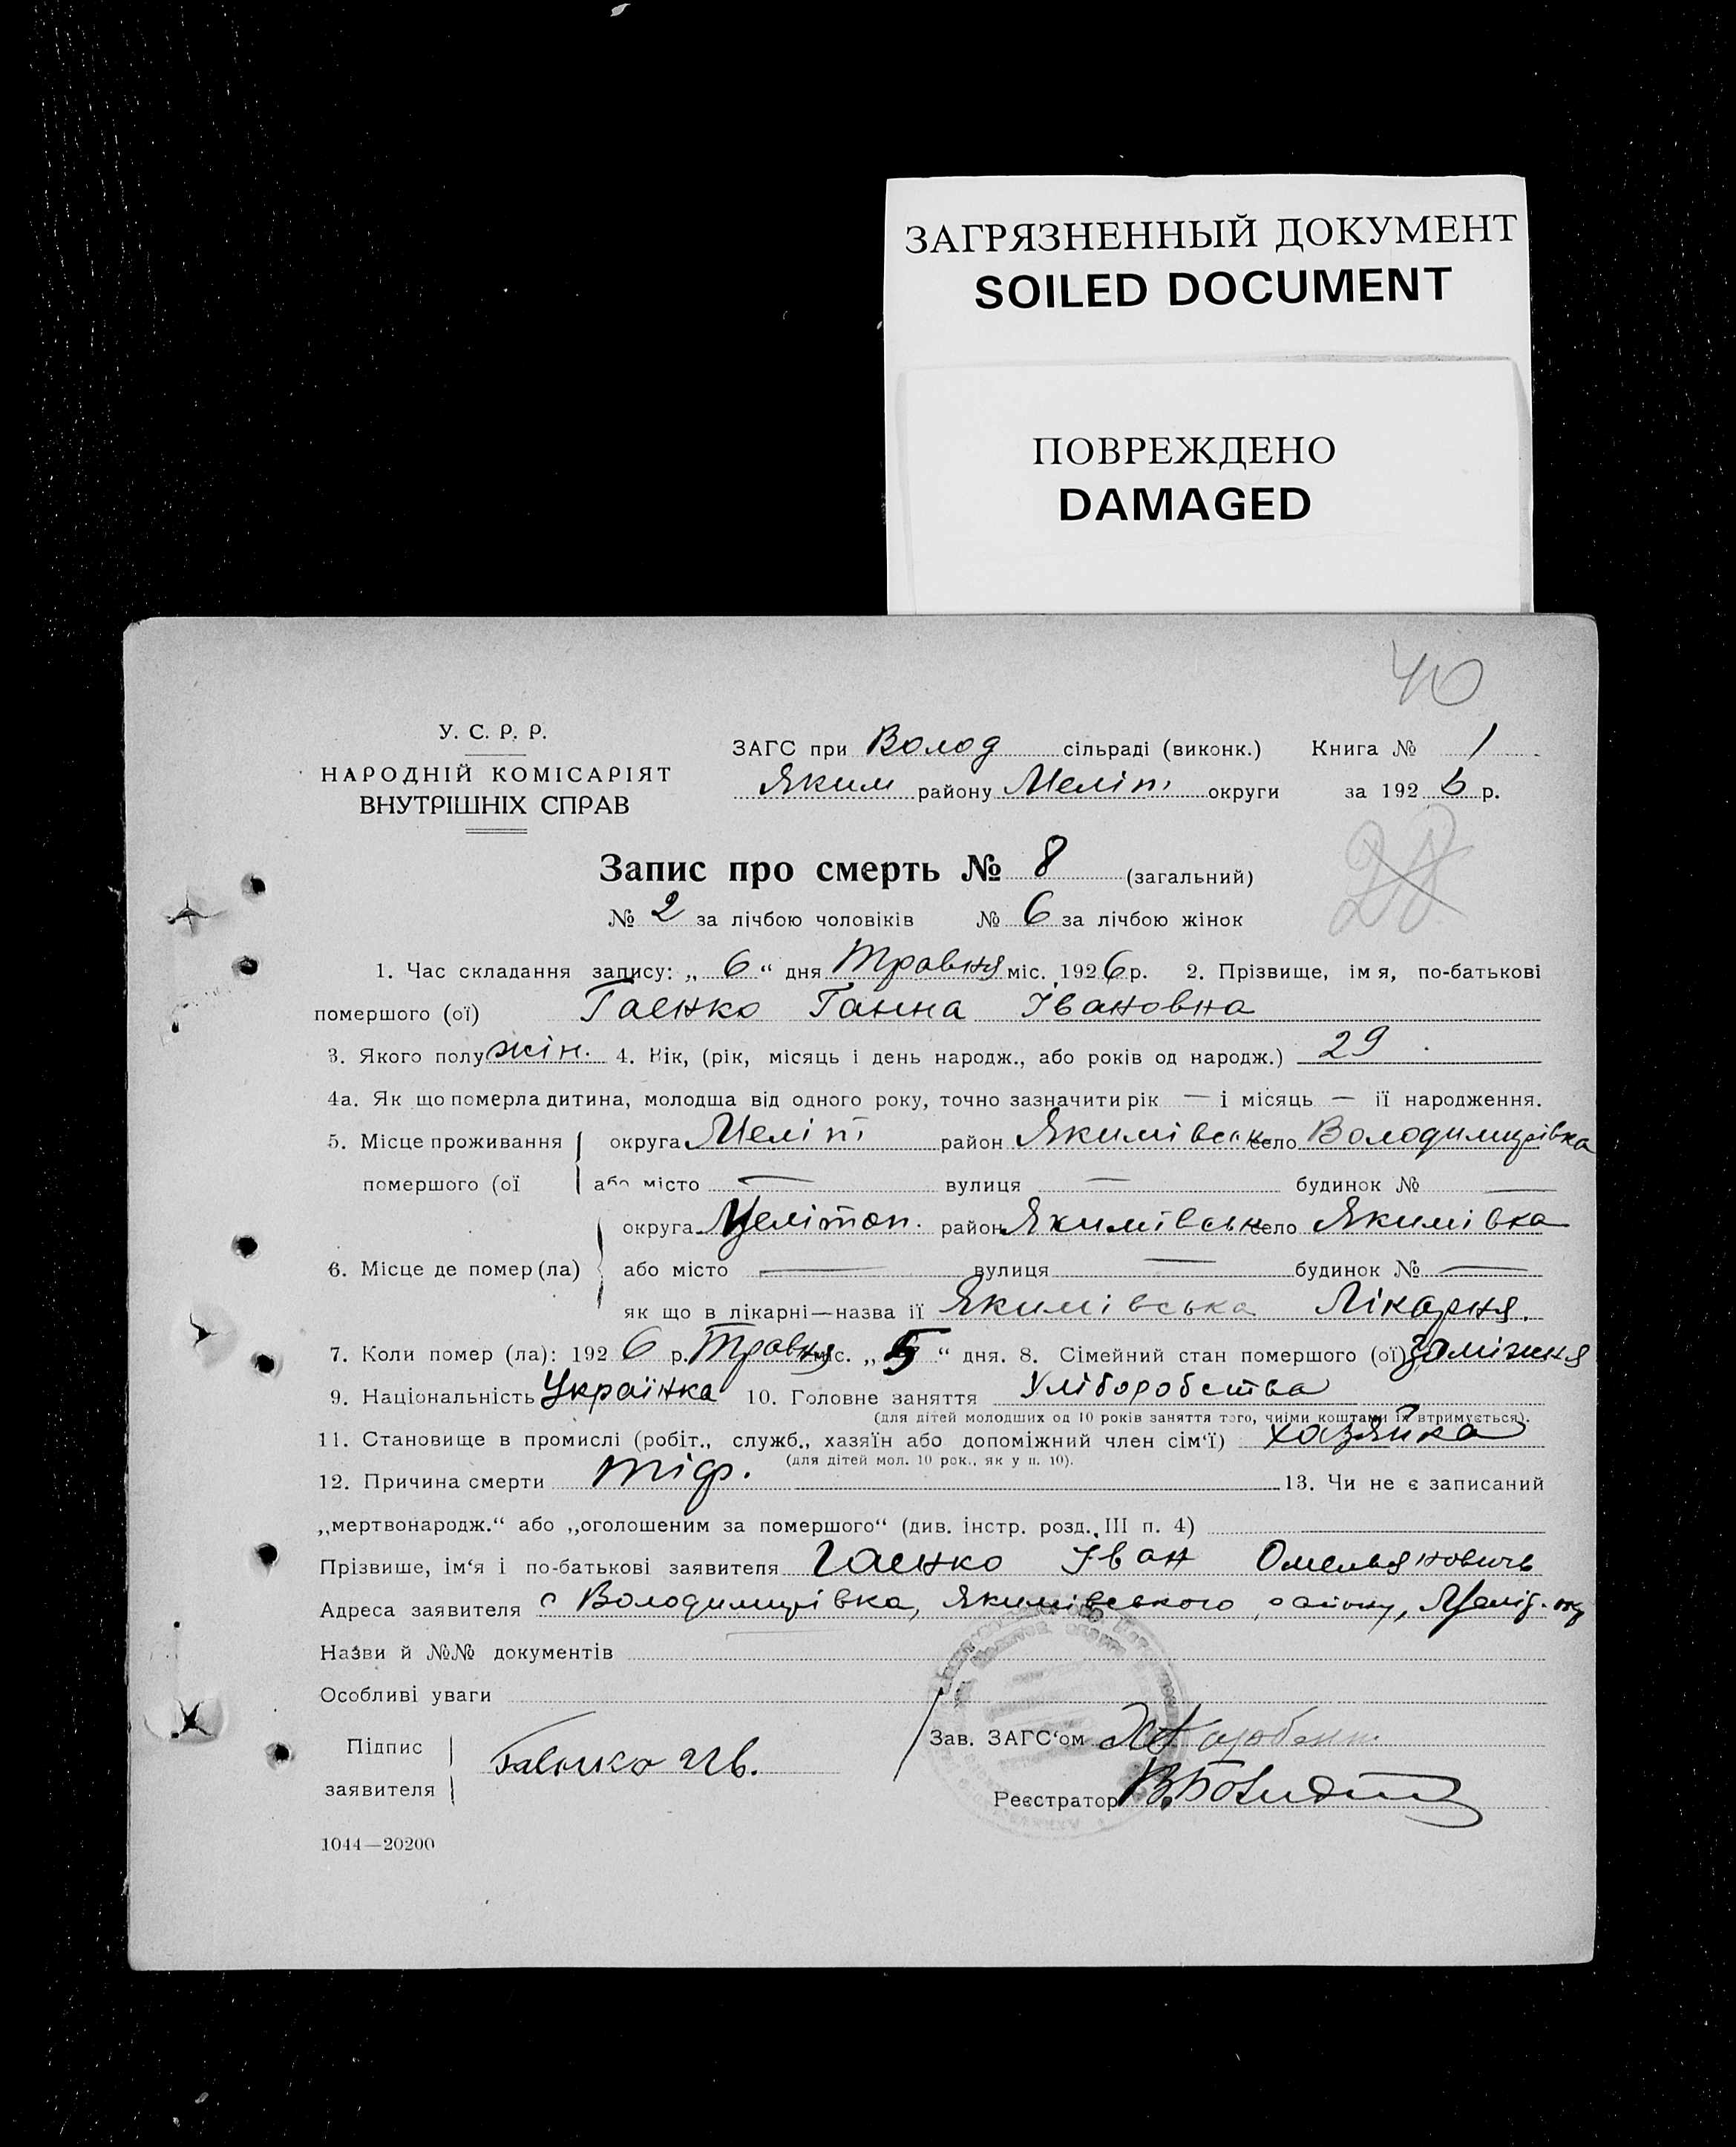 ЗАГРЯЗНЕННЫЙ ДОКУМЕНТ
SOILED DOCUMENT
ПОВРЕЖДЕНО
DAMAGED
40
У. С. Р. Р.
НАРОДНІЙ КОМІСАРІЯТ
ВНУТРІШНІХ СПРАВ
ЗАГС при Волод сільраді (виконк.) Книга № 1
Яким району Меліт. округи за 1926 р.
28
Запис про смерть № 8 (загальний)
№ 2 за лічбою чоловіків № 6 за лічбою жінок
1. Час складання запису: „ 6 “ дня Травня міс. 1926 р. 2. Прізвище, імя, по-батькові
помершого (ої) Гаенко Ганна Івановна
3. Якого полу жін. 4. Вік, (рік, місяць і день народж., або років од народж.) 29
4а. Як що померла дитина, молодша від одного року, точно зазначити рік — і місяць — ії народження.
5. Місце проживання округа Меліт район Якимівськ село Володимирівка
помершого (ої або місто — вулиця — будинок № —
округа Мелітоп. район Якимівськ село Якимівка
6. Місце де помер (ла) або місто — вулиця — будинок № —
як що в лікарні—назва ії Якимівська Лікарня.
7. Коли помер (ла): 1926 р. Травня міс. „ 5 “ дня. 8. Сімейний стан помершого (ої) заміжня
9. Національність Українка 10. Головне заняття Хліборобства
(для дітей молодших од 10 років заняття того, чиіми коштами їх втримується).
11. Становище в промислі (робіт., служб., хазяїн або допоміжний член сім‘ї) хазяйка
(для дітей мол. 10 рок., як у п. 10).
12. Причина смерти тіф. 13. Чи не є записаний
„мертвонародж.“ або „оголошеним за помершого“ (див. інстр. розд. III п. 4)
Прізвише, ім‘я і по-батькові заявителя Гаенко Іван Омельяновичь
Адреса заявителя с Володимирівка, Якимівського району,
Назви й №№ документів
Особливі уваги
Підпис
заявителя
Гаенко Ив.
Зав. ЗАГС‘ом
Реєстратор
1044—20200